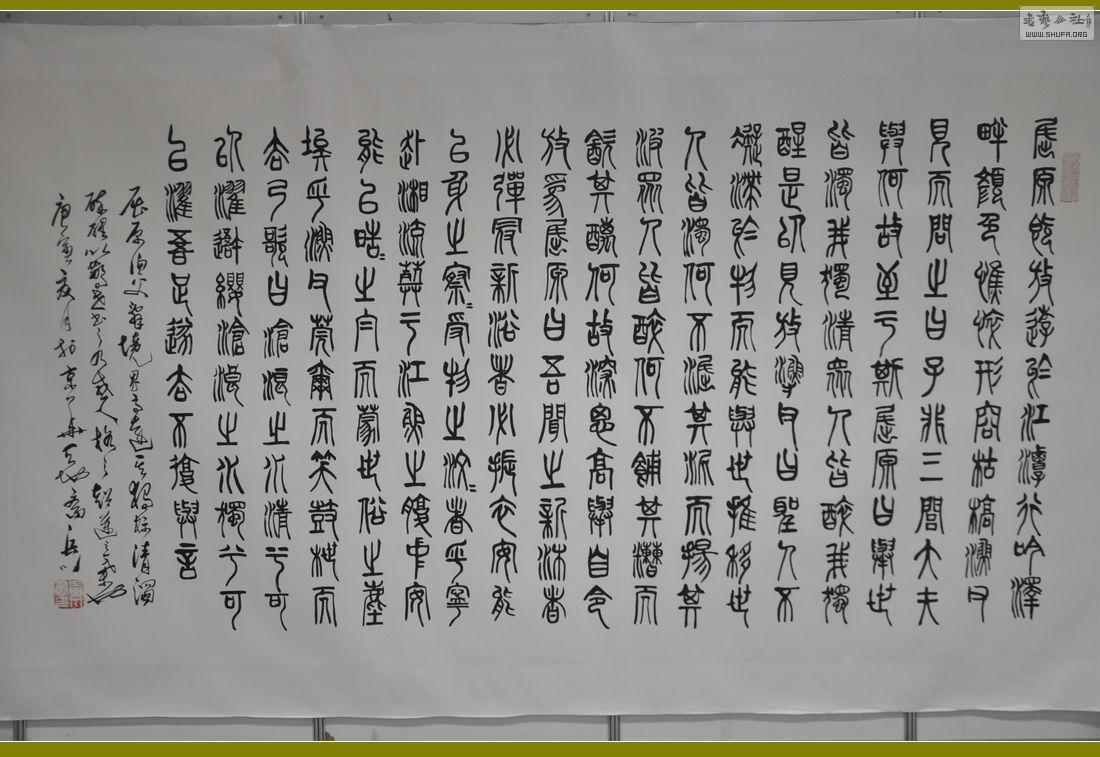 書藝公社
WWW.SHUFA.ORG
屈原既放遊於江潭行吟澤
畔顏色憔悴形容枯槁漁父
見而問之曰子非三閭大夫
與何故至于斯屈原曰舉世
皆濁我獨清眾人皆醉我獨
醒是以見放漁父曰聖人不
凝滯於物而能與世推移世
人皆濁何不淈其泥而揚其
波眾人皆醉何不餔其糟而
歠其醨何故深思高舉自令
放為屈原曰吾聞之新沐者
必彈冠新浴者必振衣安能
以身之察=受物之汶=者乎寧
赴湘流葬于江魚之腹中安
能以皓=之白而蒙世俗之塵
埃乎漁父莞爾而笑鼓枻而
去乃歌曰滄浪之水清兮可
以濯吾纓滄浪之水濁兮可
以濯吾足遂去不復與言
屈原漁父辭境界高遠其獨標清濁
醉醒以警世人格之超
庚寅夏月於京華